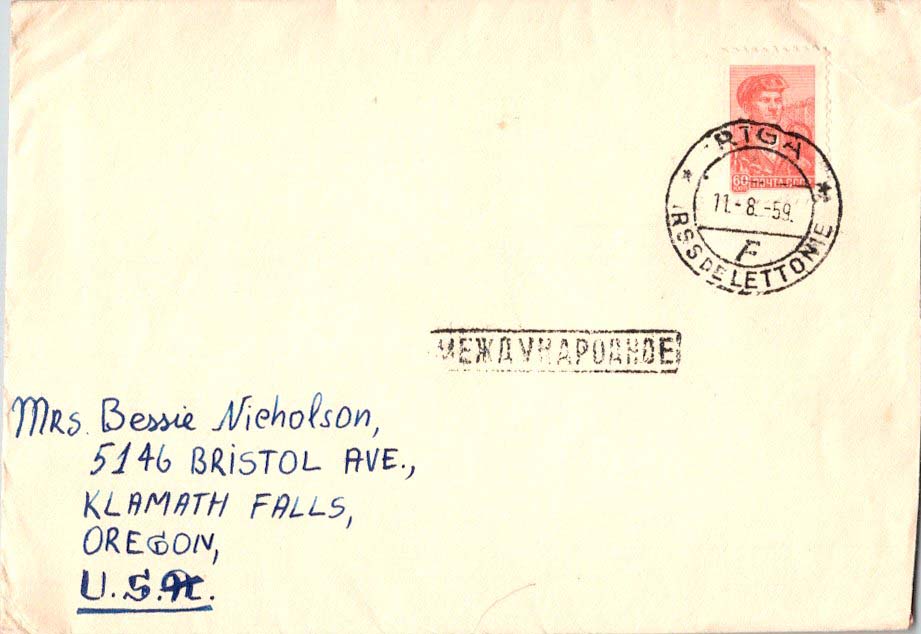 60 ПОЧТА СССР
RIGA
11.-8.-59.
F
RSS DE LETTONIE
МЕЖДУНАРОДНОЕ
Mrs. Bessie Nicholson,
5146 BRISTOL AVE.,
KLAMATH FALLS,
OREGON,
U.S.A.